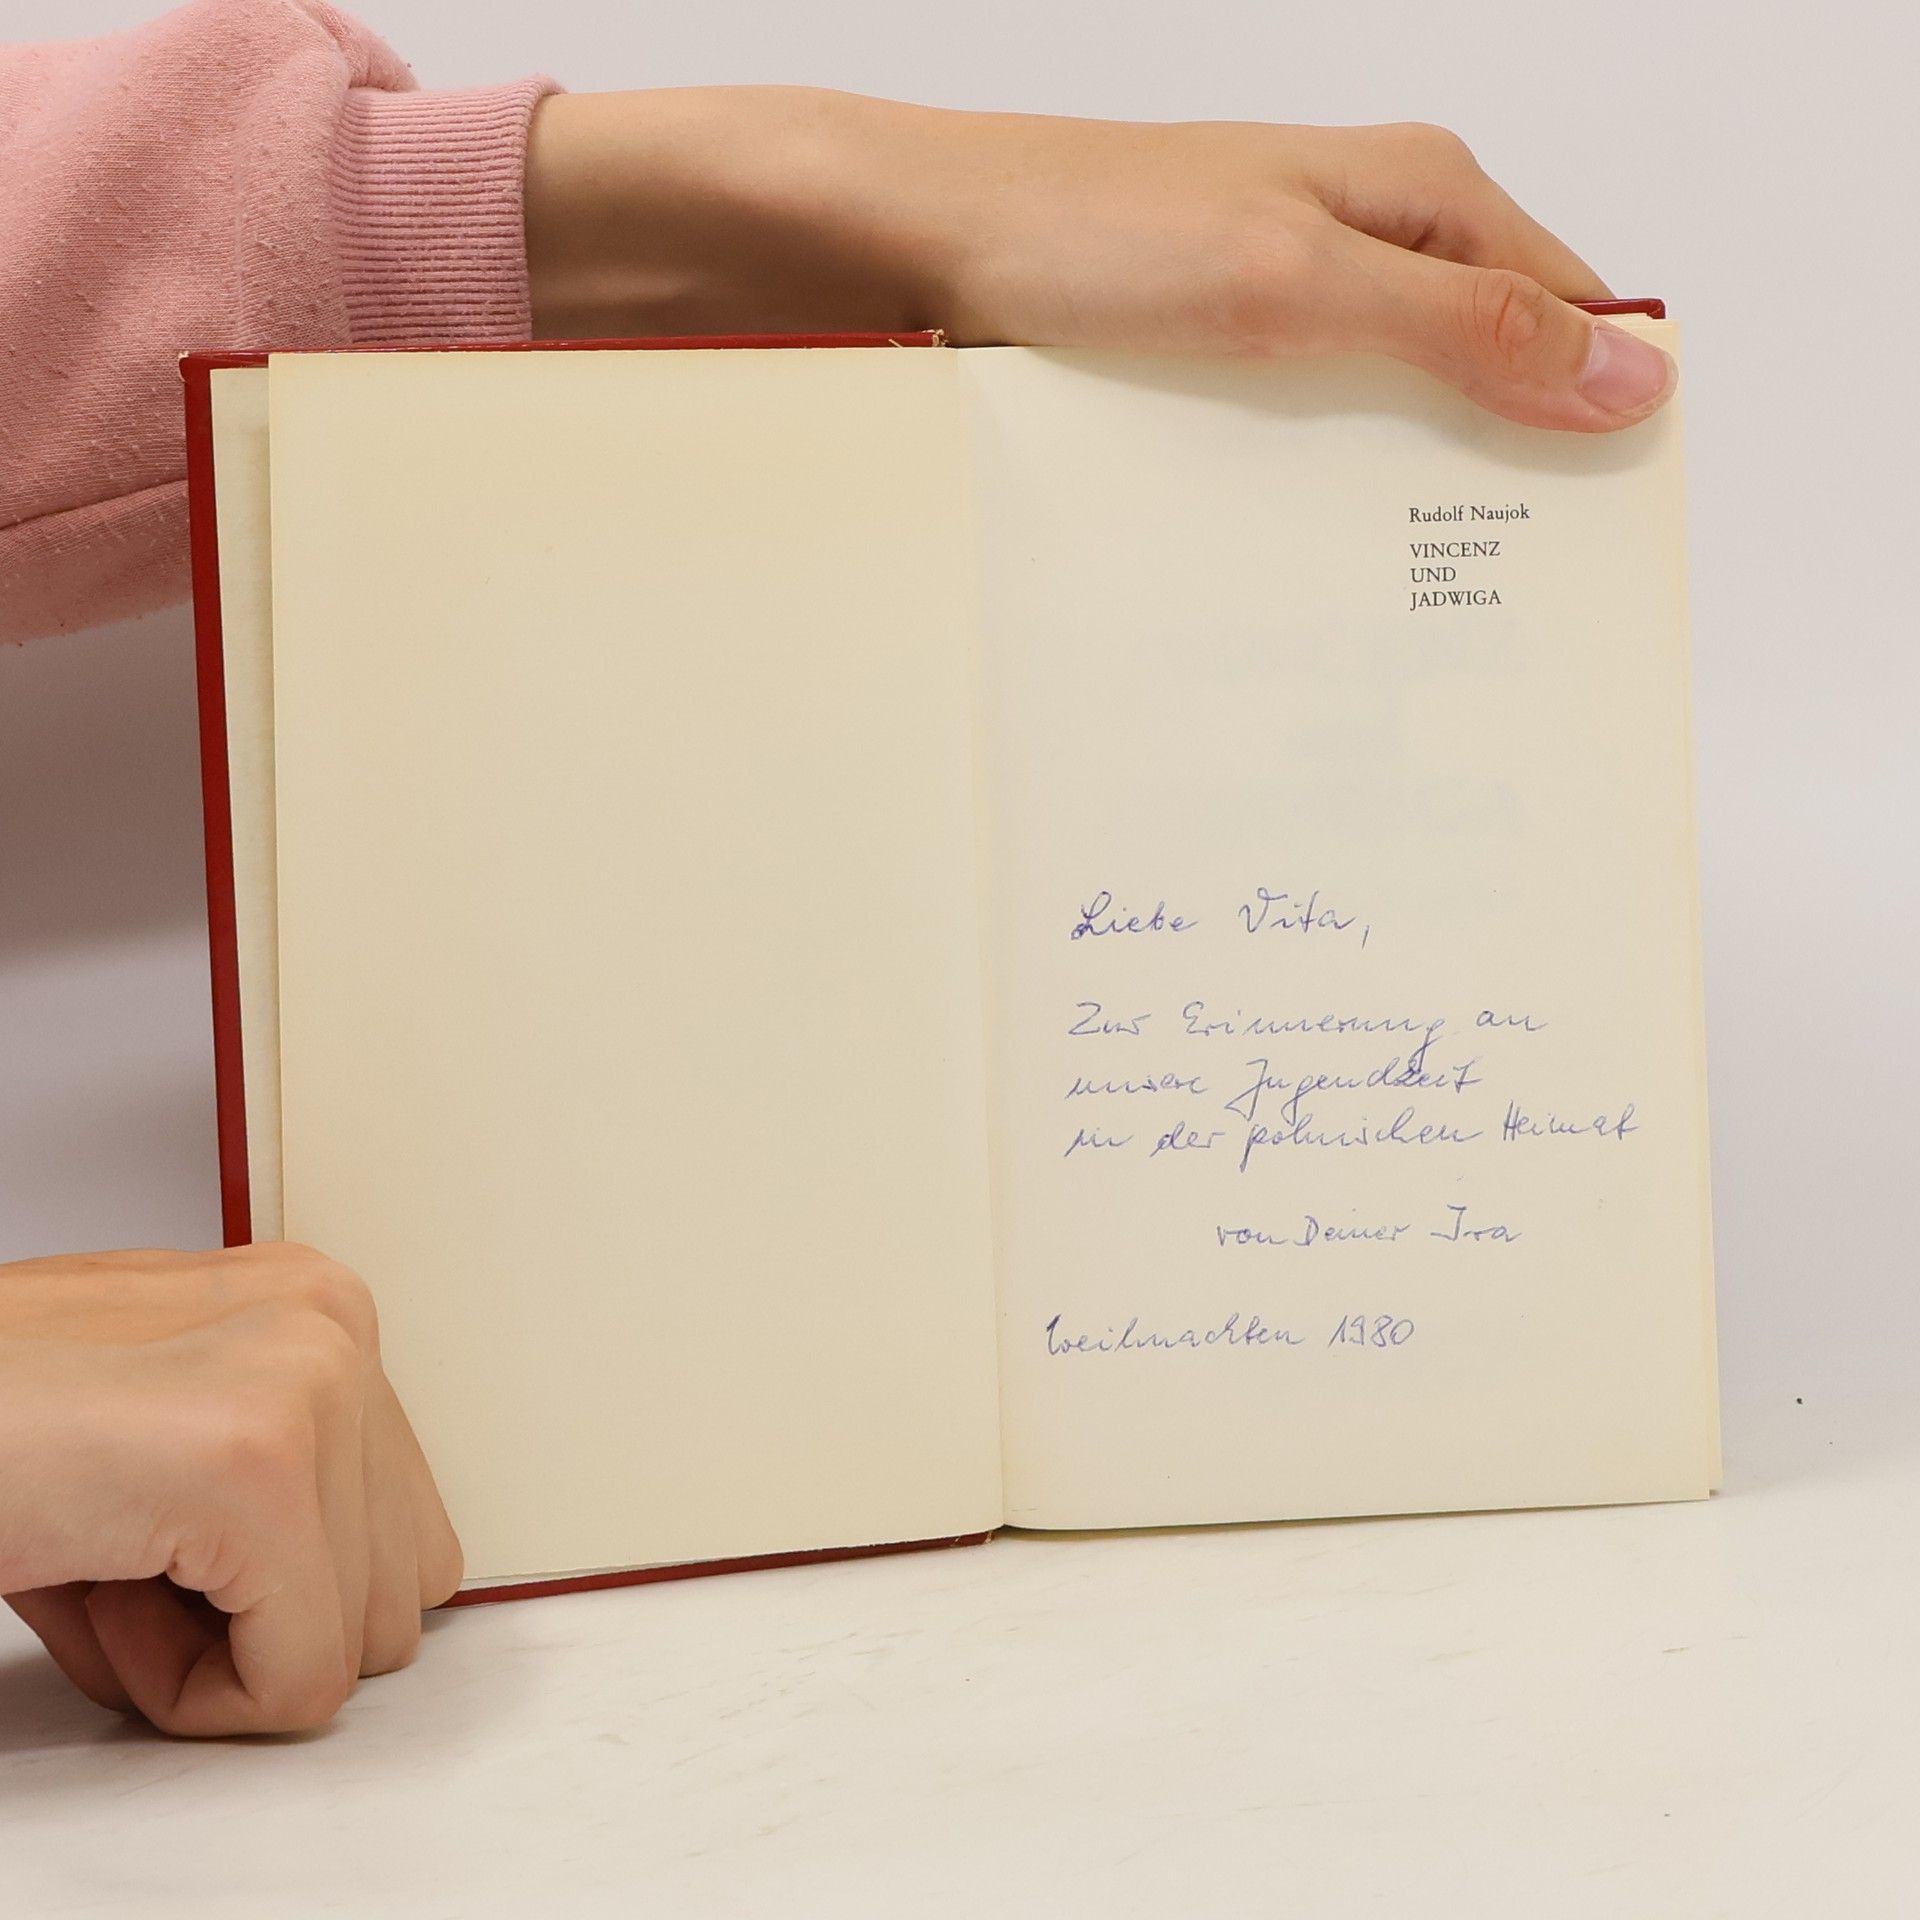 Rudolf Naujok
VINCENZ
UND
JADWIGA
Liebe Vita,
Zur Erinnerung an
unsere Jugendzeit
in der polnischen Heimat
von Deiner Ira
Weihnachten 1980